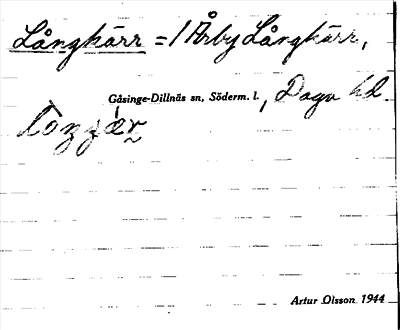 Långkärr = 1 Årby Långkärr,
Gåsinge-Dillnäs sn, Söderm. l., Daga hd
Artur Olsson 1944